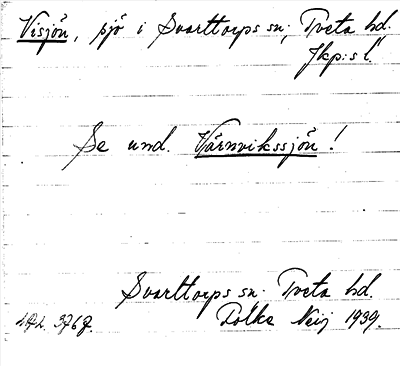 Visjön, sjö i Svarttorps sn., Tveta hd.
Jkp:s l.
Se und. Värnvikssjön!
Svarttorps sn. Tveta hd.
Folke Neij 1939.